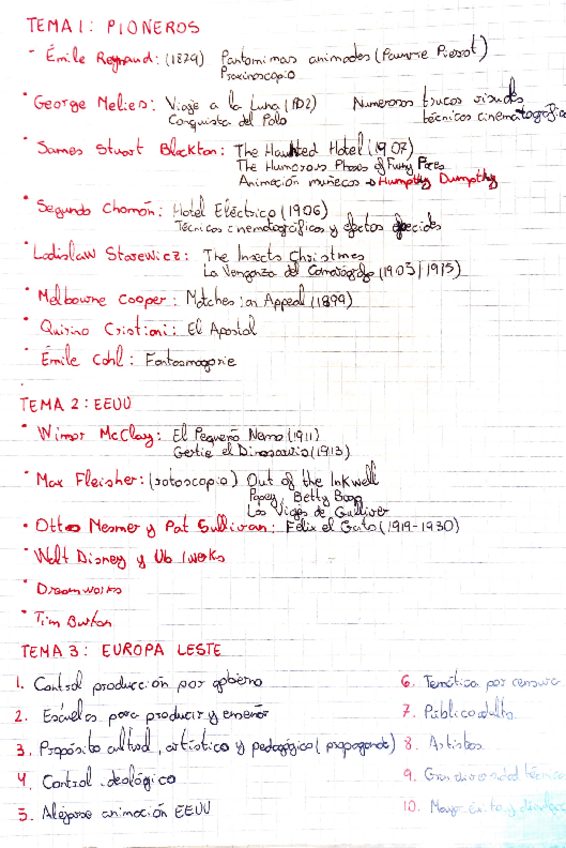 TEMA 1: PIONEROS
· Émile Reynaud: (1879) Pantomimas animadas (Pauvre Pierrot)
Praxinoscopio
· George Melies: Viaje a la Luna (1902) Numerosos trucos visuales
Conquista del Polo técnicas cinematográficas
· James Stuart Blackton: The Haunted Hotel (1907)
The Humorous Phases of Funny Faces
Animación muñecos → Humpthy Dumpthy
· Segundo Chomón: Hotel Eléctrico (1906)
Técnicas cinematográficas y efectos especiales
· Ladislaw Starewicz: The Insects Christmas
La Venganza del Camarógrafo (1903/1915)
· Melbourne Cooper: Matches: an Appeal (1899)
· Quirino Cristiani: El Apostol
· Émile Cohl: Fantasmagorie
TEMA 2: EEUU
· Winsor McClay: El Pequeño Nemo (1911)
Gertie el Dinosaurio (1913)
· Max Fleisher: (rotoscopio) Out of the Inkwell
Popey, Betty Boop
Los Viajes de Gulliver
· Otto Mesmer y Pat Sullivan: Felix el Gato (1919-1930)
· Walt Disney y Ub Iwerks
· Dreamworks
· Tim Burton
TEMA 3: EUROPA LESTE
1. Control producción por gobierno
2. Escuelas para producir y enseñar
3. Propósito cultural, artístico y pedagógico (propaganda)
4. Control ideológico
5. Alejarse animación EEUU
6. Temática por censura
7. Público adulto
8. Artistas
9. Gran diversidad técnica
10. Mayor éxito y